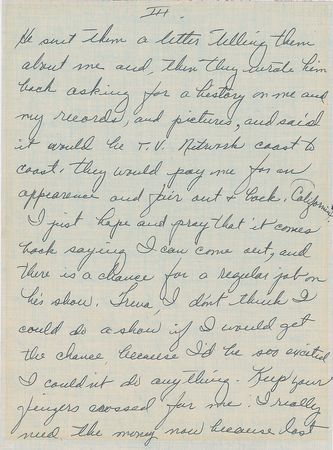 III.
He sent them a letter telling them
about me and, then they wrote him
back asking for a history on me and
my records, and pictures, and said
it would be T.V. Network coast to
coast. they would pay me for an
appearence and fair out & back. (California)
I just hope and pray that it comes
back saying I can come out, and
there is a chance for a regular job on
his show. I don't think I
could do a show if I would get
the chance, because I'd be soo excited
I couldn't do anything. Keep your
fingers crossed for me. I really
need the money now because last